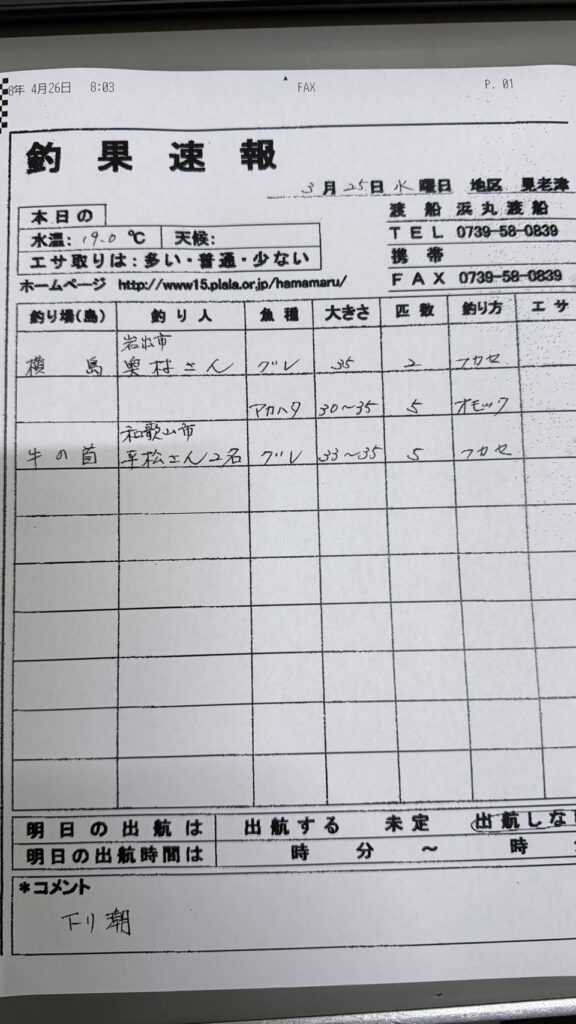 8年 4月26日 8:03 FAX P. 01
釣果速報
3月25日水曜日 地区 見老津
渡船 浜丸渡船
本日の
水温: 19.0 ℃ 天候:
TEL 0739-58-0839
携帯
エサ取りは:多い・普通・少ない
FAX 0739-58-0839
ホームページ http://www15.plala.or.jp/hamamaru/
釣り場(島) 釣り人 魚種 大きさ 匹数 釣り方 エサ
岩出市
横島 奥村さん グレ 35 2 フカセ
アカハタ 30〜35 5 オモック
和歌山市
牛の首 平松さん2名 グレ 33〜35 5 フカセ
明日の出航は 出航する 未定 出航しない
明日の出航時間は 時 分 〜 時
*コメント
下り潮